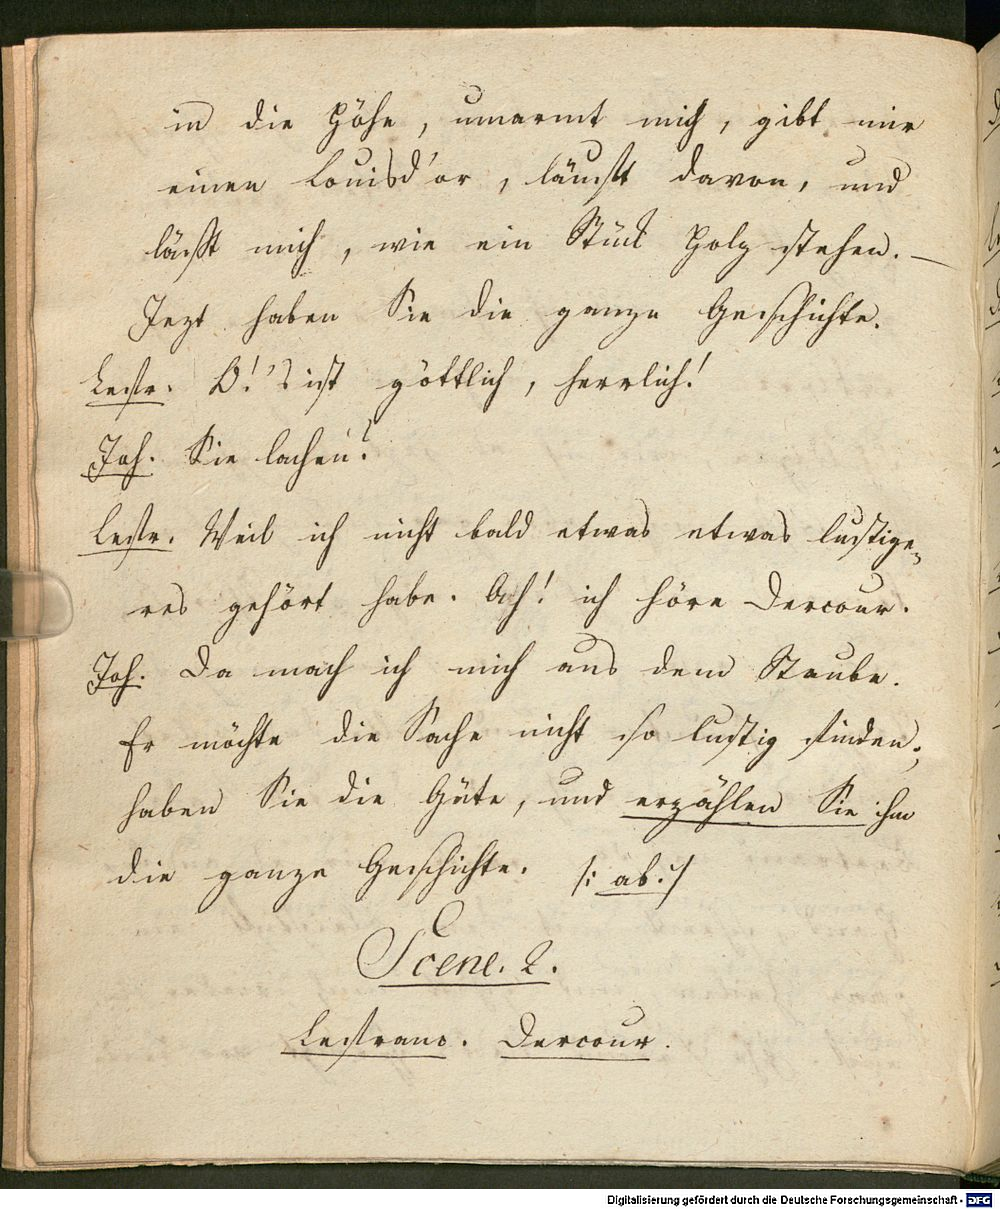 in die Höhe, umarmt mich, gibt mir
einen Louisd'or, läuft davon, und
läßt mich, wie ein Stück Holz stehen. —
Jezt haben Sie die ganze Geschichte.
Lestr. O! 's ist göttlich, herrlich!
Joh. Sie lachen?
Lestr. Weil ich nicht bald etwas etwas lustige=
res gehört habe. Ach! ich höre Dercour.
Joh. Da mach ich mich aus dem Staube.
Er möchte die Sache nicht so lustig finden;
haben Sie die Güte, und erzählen Sie ihm
die ganze Geschichte. /: ab. :/
Scene. 2.
Lestrano. Dercour.
Digitalisierung gefördert durch die Deutsche Forschungsgemeinschaft - DFG